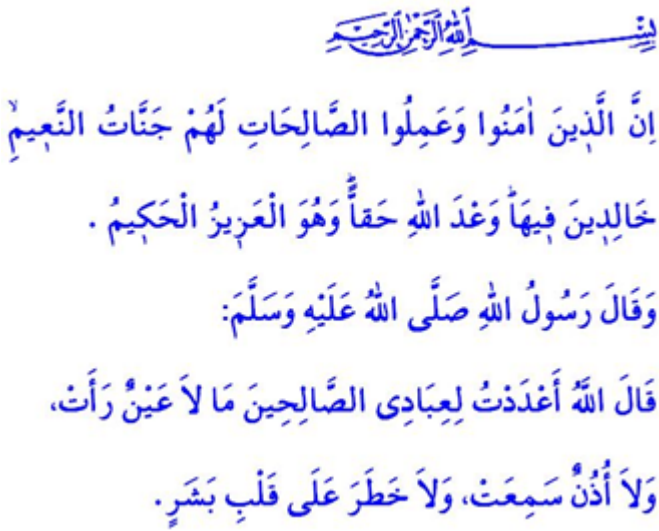 بِسْمِ اللهِ الرَّحْمٰنِ الرَّحِيمِ
اِنَّ الَّذ۪ينَ اٰمَنُوا وَعَمِلُوا الصَّالِحَاتِ لَهُمْ جَنَّاتُ النَّع۪يمِۙ
خَالِد۪ينَ ف۪يهَاۜ وَعْدَ اللهِ حَقاًّۜ وَهُوَ الْعَز۪يزُ الْحَك۪يمُ .
وَقَالَ رَسُولُ اللهِ صَلَّى اللهُ عَلَيْهِ وَسَلَّمَ:
قَالَ اللَّهُ أَعْدَدْتُ لِعِبَادِى الصَّالِحِينَ مَا لاَ عَيْنٌ رَأَتْ،
وَلاَ أُذُنٌ سَمِعَتْ، وَلاَ خَطَرَ عَلَى قَلْبِ بَشَرٍ .